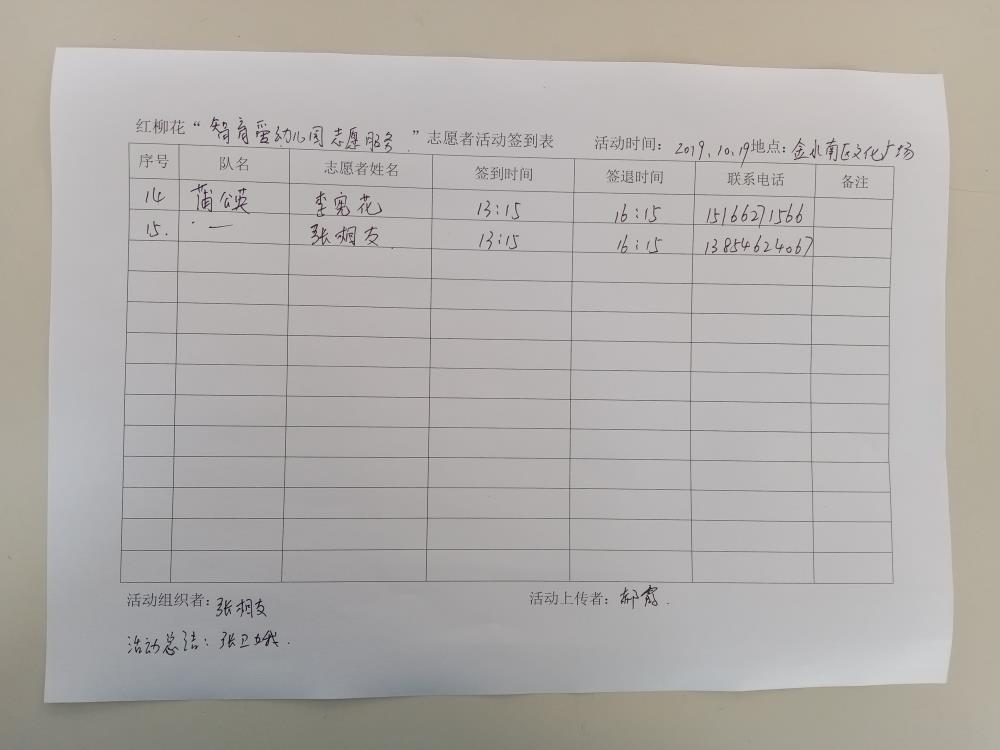 红柳花“智育蛋幼儿园志愿服务”志愿者活动签到表 活动时间：2019.10.19地点：金水南区文化广场
序号 队名 志愿者姓名 签到时间 签退时间 联系电话 备注
14 蒲公英 李宪花 13:15 16:15 15166271566
15. 〃 张桐友 13:15 16:15 13854624067
活动组织者：张桐友 活动上传者：郝霞.
活动总结：张卫娥.